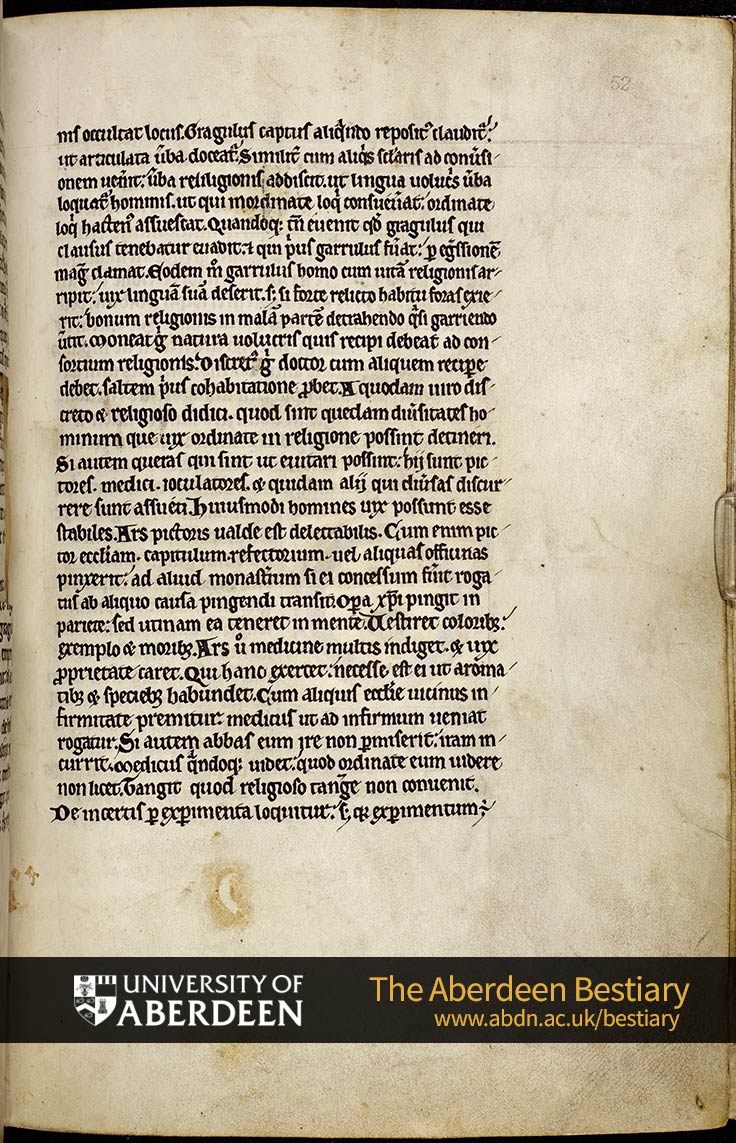 52
nis occultat locus. Gragulus captus aliqñdo reposit⁹ claudit᷑:
ut articulata ũba doceat᷑. Similit᷑ cum aliq̇s sc̃laris ad conũsi-
onem uenit: ũba reliligionis addiscit. ut lingua uoluc̃s ũba
loquat᷑ hominis. ut qui inordinate loq̇ consueuat: ordinate
loq̇ hacten⁹ assuescat. Quandoq; tñ euenit qđ gragulus qui
clausus tenebatur euadit. ⁊ qui p̃us garrulus fũat: p̱ eg̃ssionẽ
mag̃ clamat. Eodem m̊ garrulus homo cum uitã religionis ar-
ripit: uix linguã suã deserit. s; si forte relicto habitu foras exie-
rit: bonum religionis in malã partẽ detrahendo q̃si garriendo
ũtit. Moneat g̃ natura uolucris quis recipi debeat ad con-
sortium religionis. Discret⁹ g̃ doctor cum aliquem recipe
debet. saltem p̃us cohabitatione ꝓbet. A quodam uiro dis-
creto & religioso didici. quod sint quedam diũsitates ho-
minum que uix ordinate in religione possint detineri.
Si autem queras qui sint ut euitari possint: hij sunt pic-
tores. medici. ioculatores. & quidam alij qui diũsas discur-
rere sunt assueti. Huiusmodi homines uix possunt esse
stabiles. Ars pictoris ualde est delectabilis. Cum enim pic-
tor eccl̃iam. capitulum. refectorium. uel aliquas officinas
pinxerit: ad aliud monast̃ium si ei concessum fũit roga-
tus ab aliquo causa pingendi transit. Opa xp̃i pingit in
pariete: sed utinam ea teneret in mente. Uestiret colorib;
exemplo & morib;. Ars ů medicine multis indiget. & uix
ꝓprietate caret. Qui hanc exercet: necesse est ei ut aroma-
tib; & specieb; habundet. Cum aliquis eccl̃ie uicinus in-
firmitate premitur: medicus ut ad infirmum ueniat
rogatur. Si autem abbas eum ire non p̱miserit: iram in-
currit. Medicus q̃ndoq; uidet: quod ordinate eum uidere
non licet. Tangit quod religioso tang̃e non conuenit.
De incertis p̱ exp̱imenta loquitur: s; q̱ exp̱imentum:
UNIVERSITY OF
ABERDEEN
The Aberdeen Bestiary
www.abdn.ac.uk/bestiary